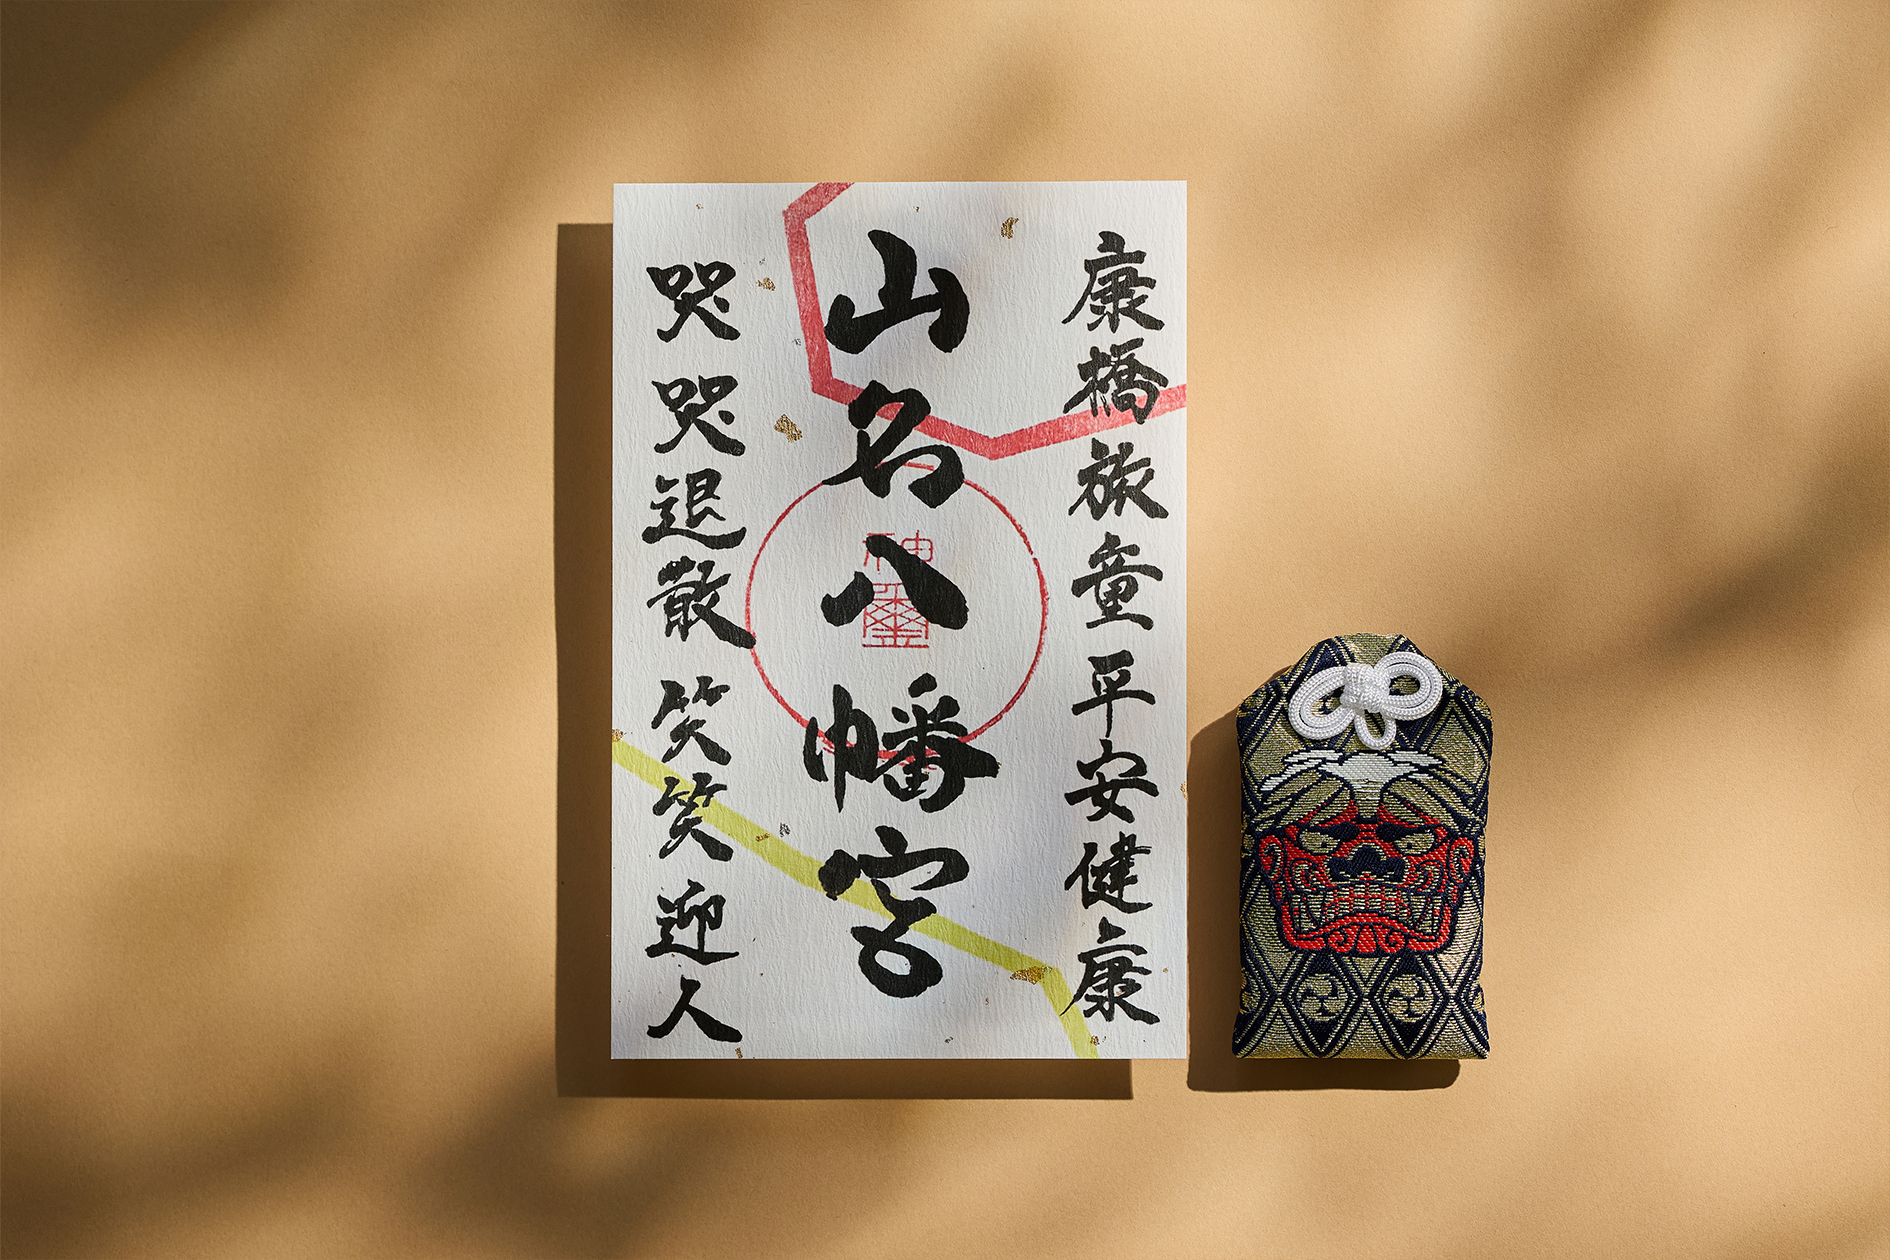 康橋旅童平安健康
山名八幡宮
哭哭退散笑笑迎人
神璽